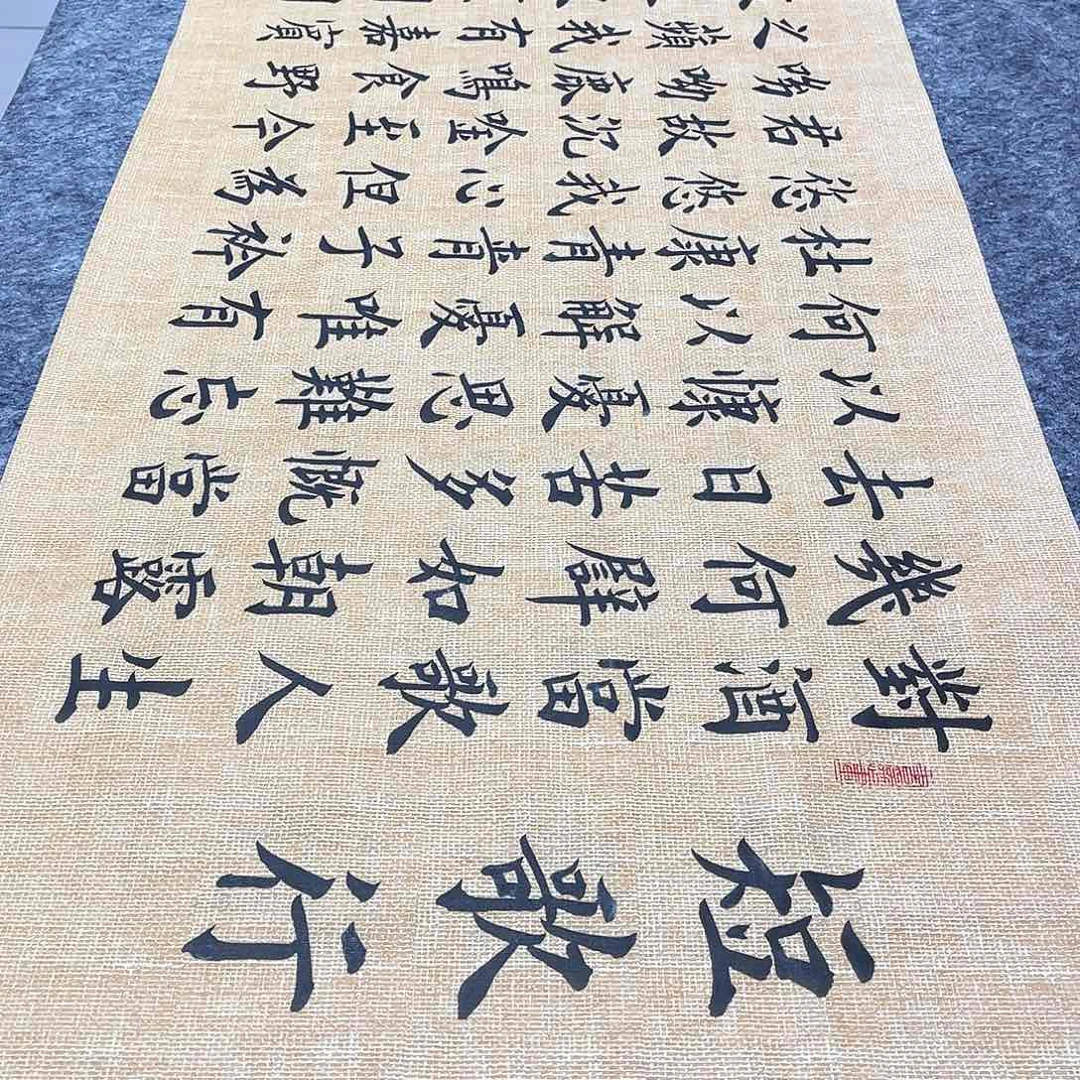 短歌行
對酒當歌人生
幾何譬如朝露
去日苦多慨當
以慷憂思難忘
何以解憂唯有
杜康青青子衿
悠悠我心但為
君故沉唫至今
呦呦鹿鳴食野
之蘋我有嘉賓